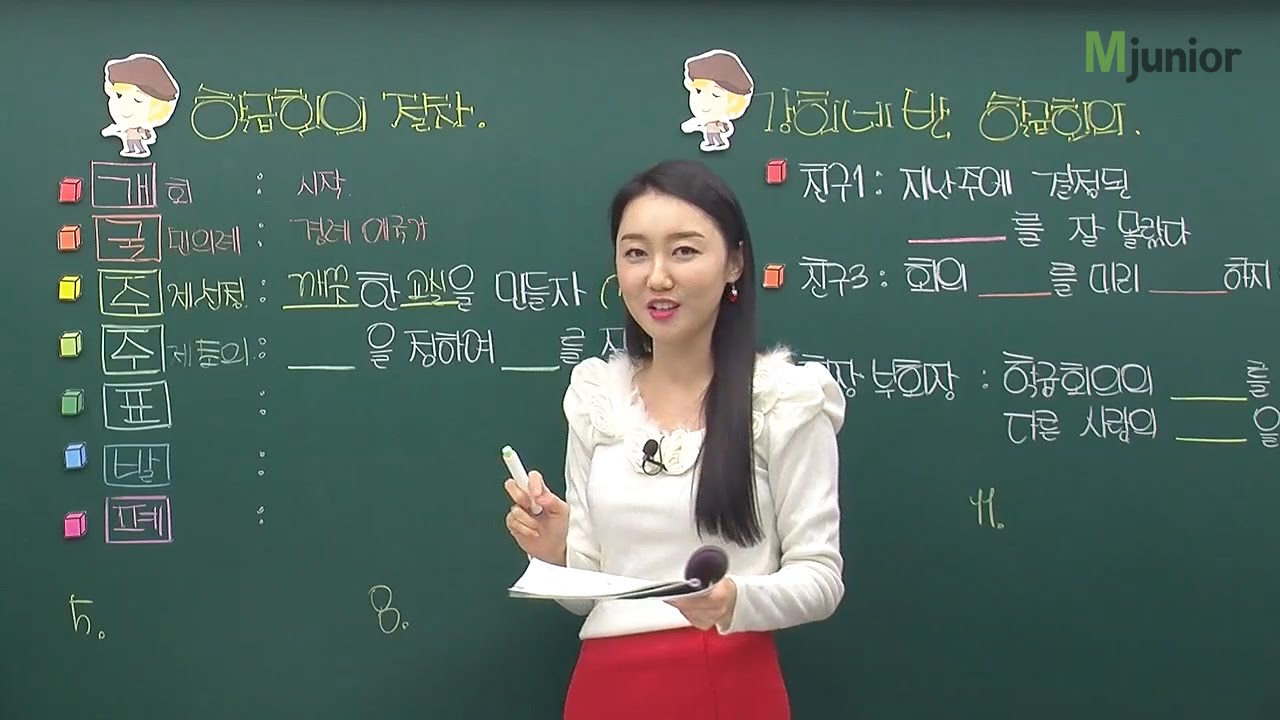 Mjunior
학급회의 절차.
개회 : 시작.
국민의례 : 경례 애국가
주제선정 : 깨끗한 교실을 만들자 (
주제토의 : ___ 을 정하여 ___ 를
표 :
발 :
폐 :
5.
8.
강희네 반 학급회의.
친구1 : 지난주에 결정된
___ 를 잘 몰랐다
친구3 : 회의 ___를 미리 ___하지
회장 부회장 : 학급회의의 ___를
다른 사람의 ___을
11.